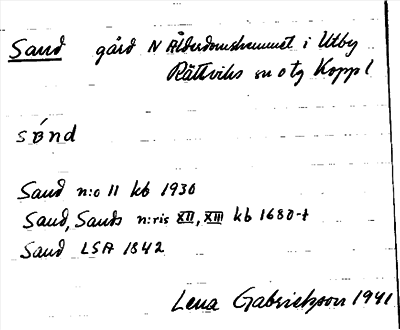 Sand gård N Ålderdomshemmet i Utby
Rättviks sn o tg Koppl
sánd
Sand n:o 11 kb 1930
Sand, Sands n:ris XII, XIII kb 1680-t
Sand LSA 1842
Lena Gabrielsson 1941